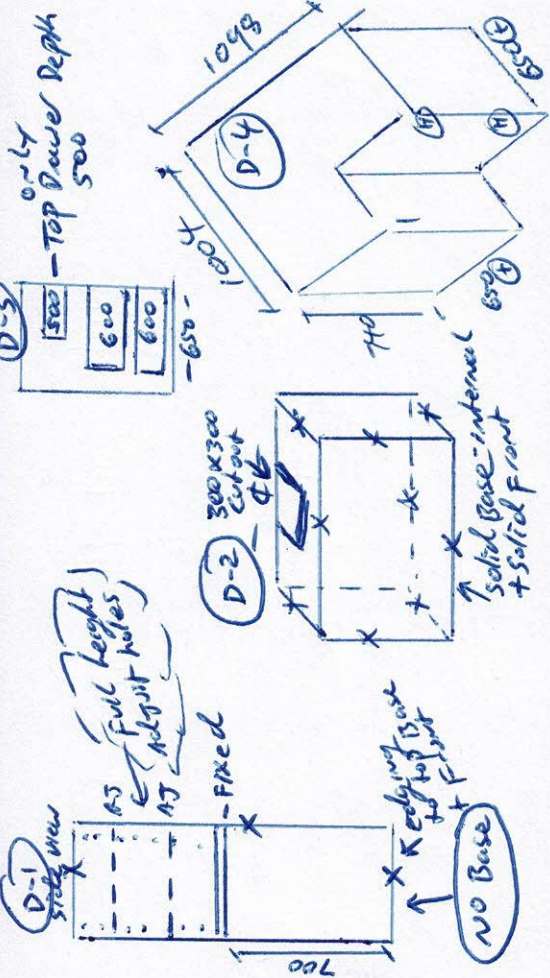 D-1
side view
AS
Full height
Adjust holes
AJ
FIXED
700
X
Edging
to top Base
+ Front
NO Base
D-2
300x300
cutout
Solid Base-internal
+ Solid Front
D-3
500
600
600
-650-
only
- Top Drawer Depth
500
D-4
1004
1098
740
650
650
H
H